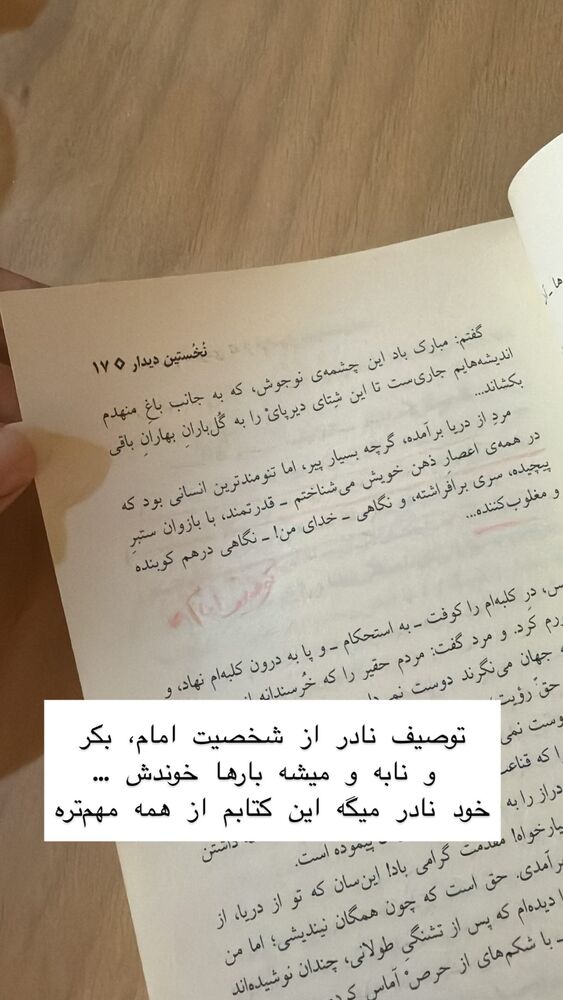 نُخُستین دیدار ◊ ۱۷
گفتم: مبارک باد این چشمه‌ی نوجوش، که به جانب باغِ منهدم
اندیشه‌هایم جاری‌ست تا این شِتای دیرپایْ را به گُل‌بارانِ بهارانِ باقی
بکشاند...
مردِ از دریا برآمده، گرچه بسیار پیر، اما تنومندترین انسانی بود که
در همه‌ی اعصارِ ذهن خویش می‌شناختم ـ قدرتمند، با بازوان ستبرِ
پیچیده، سری برافراشته، و نگاهی ـ خدای من! ـ نگاهی درهم کوبنده
و مغلوب‌کننده...
توصیف امام
در کلبه‌ام را کوفت ـ به استحکام ـ و پا به درون کلبه‌ام نهاد، و
کرد. و مرد گفت: مردم حقیر را که خُرسندانه از
جهان می‌نگرند دوست
حقّ رؤیت
دوست
را که
دراز را به
داشتن
پیموده است.
مقدمت گرامی باد! این‌سان که تو از دریا، از
حق است که چون همگان نیندیشی؛ اما من
دیده‌ام که پس از تشنگیِ طولانی، چندان نوشیده‌اند
ـ با شکم‌های از حرصْ آماس
توصیف نادر از شخصیت امام، بکر
و نابه و میشه بارها خوندش ...
خود نادر میگه این کتابم از همه مهم‌تره